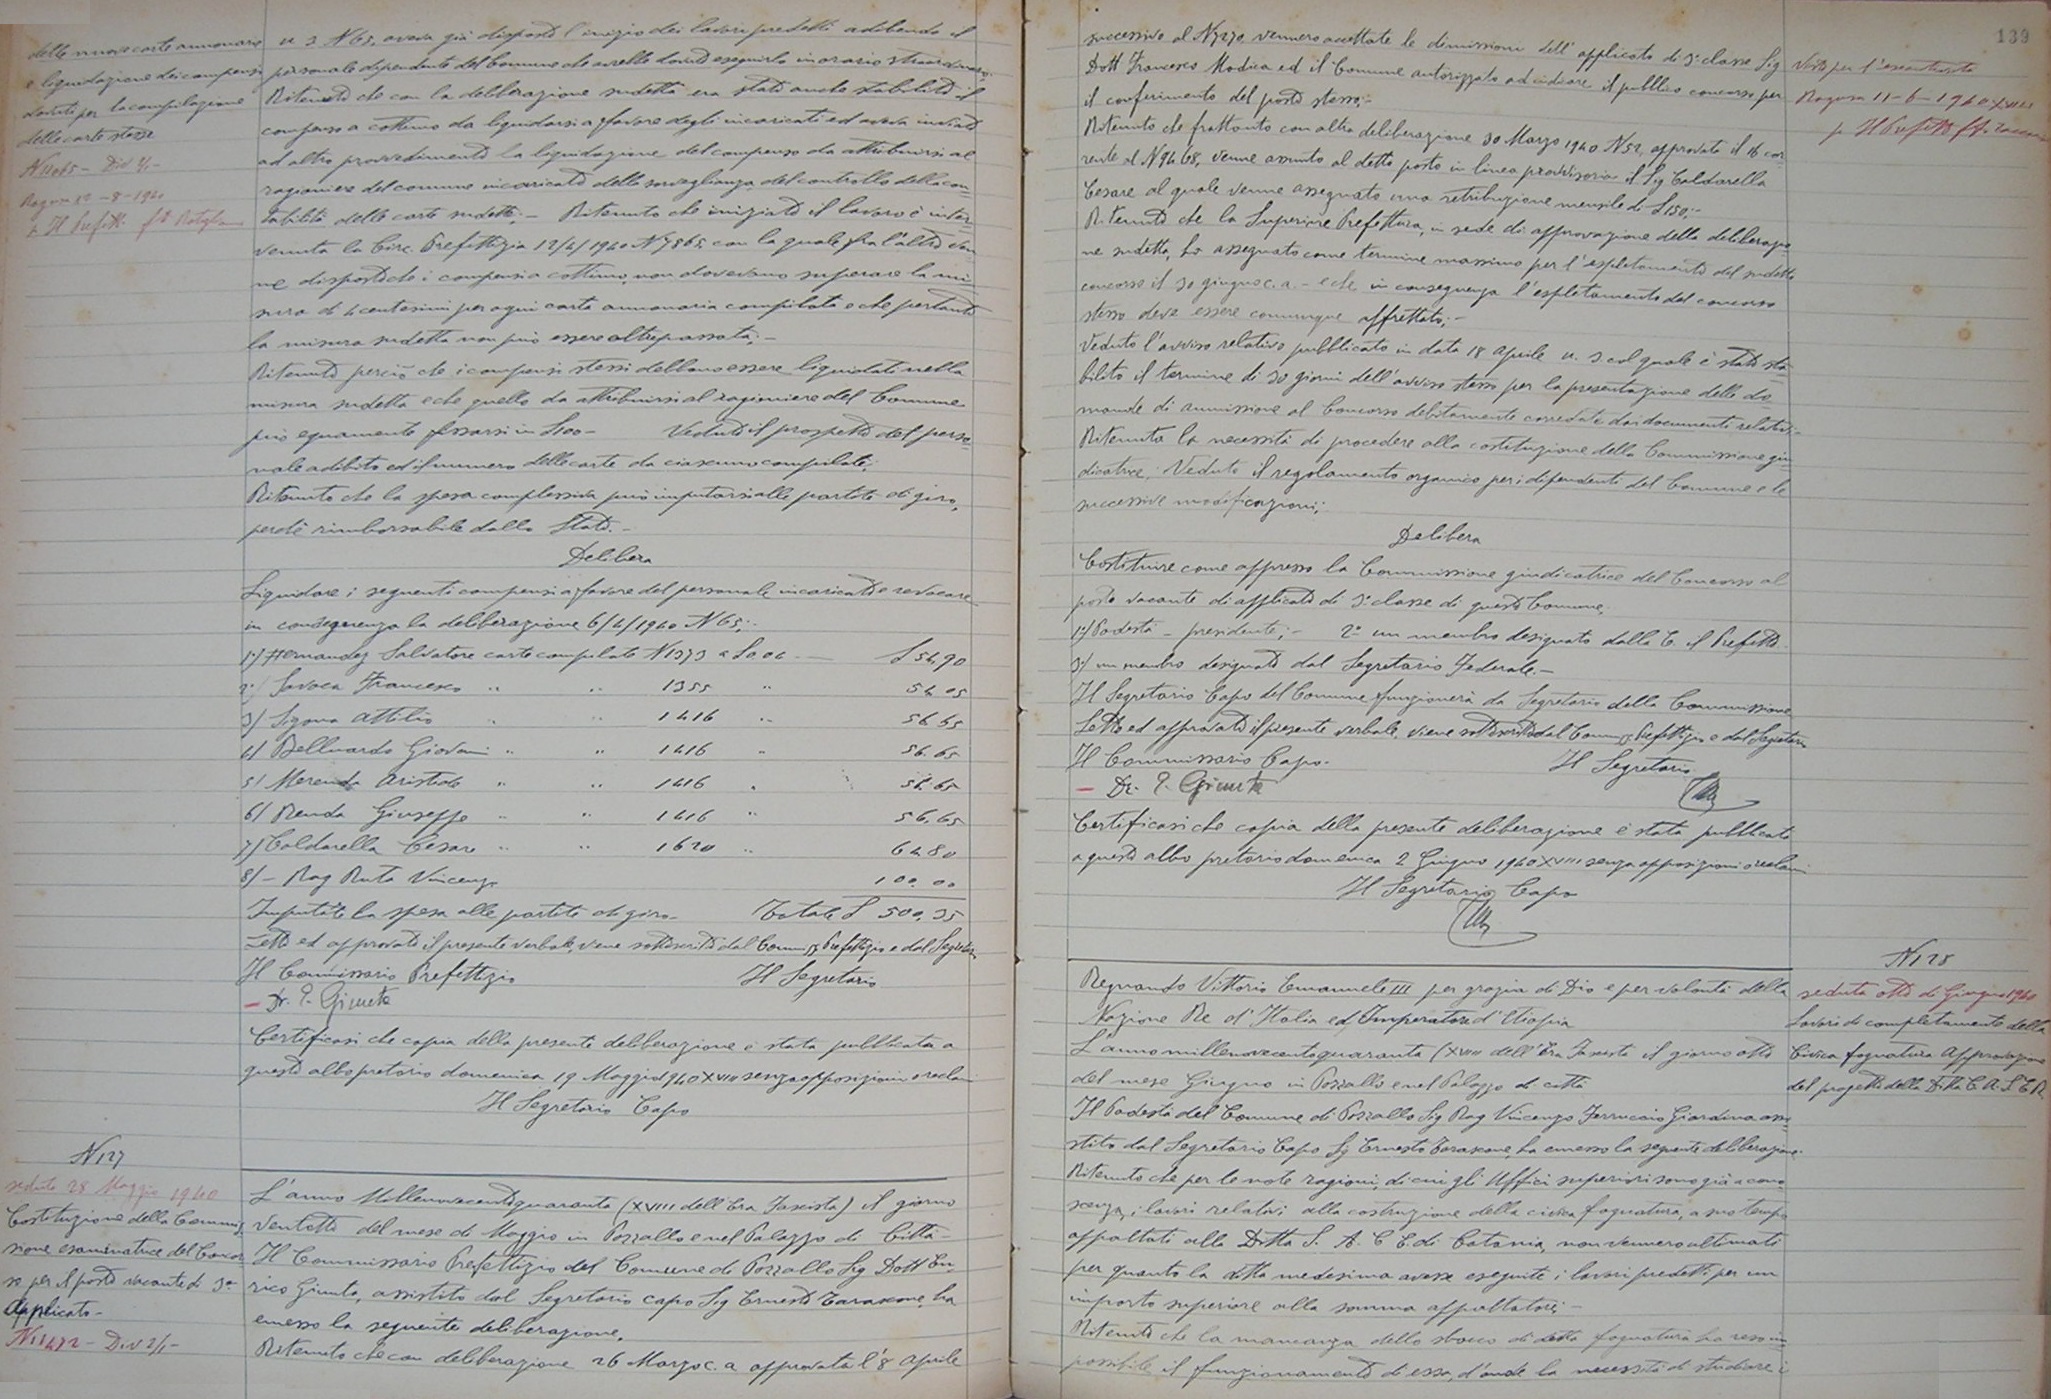 delle nuove carte annonarie
e liquidazione dei compensi
dovuti per la compilazione
delle carte stesse
N 11065 - Div 2/1 -
Ragusa -8-1940
p Il Prefetto f.to
u. s. N 65, aveva già disposto l'inizio dei lavori predetti adibendo il
personale dipendente del Comune che avrebbe dovuto eseguirlo in orario straordinario.
Ritenuto che con la deliberazione sudetta era stato anche stabilito il
compenso a cottimo da liquidarsi a favore degli incaricati ed aveva inviato
ad altro provvedimento la liquidazione del compenso da attribuirsi al
ragioniere del comune incaricato della sorveglianza del controllo della con
tabilità delle carte sudette; - Ritenuto che iniziato il lavoro è inter
venuta la Circ. Prefettizia 12/4/1940 N 7865 con la quale fra l'altro ven
ne disposto che i compensi a cottimo, non dovevano superare la mi
sura di 4 centesimi per ogni carta annonaria compilata e che pertanto
la misura sudetta non può essere oltrepassata; -
Ritenuto perciò che i compensi stessi debbano essere liquidati nella
misura sudetta e che quello da attribuirsi al ragioniere del Comune
può equamente fissarsi in £ 100 - Veduto il prospetto del perso
nale adibito ed il numero delle carte da ciascuno compilate;
Ritenuto che la spesa complessiva può imputarsi alle partite di giro,
perchè rimborsabile dallo Stato. -
Delibera
Liquidare i seguenti compensi a favore del personale incaricato e revocare
in conseguenza la deliberazione 6/4/1940 N 65; -
1°/ Hernandez Salvatore carte compilate N 1373 a £ 0,04 - £ 54,90
2/ Savoca Francesco " " 1355 " 54 05
3/ Sigona Attilio " " 1416 " 56 65
4/ Belluardo Giovanni " " 1416 " 56.65
5/ Merenda Aristide " " 1416 " 56 65
6/ Renda Giuseppe " " 1416 " 56.65
7/ Caldarella Cesare " " 1620 " 64 80
8/ - Rag Ruta Vincenzo 100.00
Imputate la spesa alle partite di giro - Totale £ 500,35
Letto ed approvato il presente verbale, viene sottoscritto dal Commiss Prefettizio e dal Segretario
Il Commissario Prefettizio Il Segretario
- Dr. E. Giunta
Certificasi che copia della presente deliberazione è stata pubblicata a
questo albo pretorio domenica 19 Maggio 1940 XVIII senza opposizioni o reclami
Il Segretario Capo
N 127
seduta 28 Maggio 1940
Costituzione della Commis
sione esaminatrice del Concor
so per il posto vacante di 3ª
Applicato -
N 11472 - Div 2/1 -
L'anno Millenovecentoquaranta (XVIII dell'Era Fascista) il giorno
ventotto del mese di Maggio in Pozzallo e nel Palazzo di Città -
Il Commissario Prefettizio del Comune di Pozzallo Sig Dott En
rico Giunta, assistito dal Segretario capo Sig Ernesto Tarascone, ha
emesso la seguente deliberazione.
Ritenuto che con deliberazione 26 Marzo c. a approvata l'8 Aprile
139
successivo al N 7270 vennero accettate le dimissioni dell'applicato di 3ª classe Sig
Dott Francesco Modica ed il Comune autorizzato ad indicare il pubblico concorso per
il conferimento del posto stesso; -
Ritenuto che frattanto con altra deliberazione 30 Marzo 1940 N 52, approvata il 16 cor
rente al N 9468, venne assunto al detto posto in linea provvisoria il Sig Caldarella
Cesare al quale venne assegnato una retribuzione mensile di £ 150; -
Ritenuto che la Superiore Prefettura, in sede di approvazione della deliberazio
ne sudetta, ha assegnato come termine massimo per l'espletamento del sudetto
concorso il 30 giugno c. a. - e che in conseguenza l'espletamento del concorso
stesso deve essere comunque affrettato; -
Veduto l'avviso relativo pubblicato in data 18 Aprile u. s. col quale è stato sta
bilito il termine di 30 giorni dell'avviso stesso per la presentazione delle do
mande di ammissione al Concorso debitamente corredate dai documenti relativi; -
Ritenuta la necessità di procedere alla costituzione della Commissione giu
dicatrice; Veduto il regolamento organico per i dipendenti del Comune e le
successive modificazioni;
Delibera
Costituire come appresso la Commissione giudicatrice del Concorso al
posto vacante di applicato di 3ª classe di questo Comune.
1°/ Podestà - presidente; - 2° un membro designato dalla E. il Prefetto
3°/ un membro designato dal Segretario Federale. -
Il Segretario Capo del Comune funzionerà da Segretario della Commissione
Letto ed approvato il presente verbale, viene sottoscritto dal Commiss Prefettizio e dal Segretario
Il Commissario Capo - Il Segretario
- Dr. E. Giunta
Certificasi che copia della presente deliberazione è stata pubblicata
a questo albo pretorio domenica 2 Giugno 1940 XVIII senza opposizioni o reclami
Il Segretario Capo
Visto per l'esecutorietà
Ragusa 11-6-1940-XVIII
p Il Prefetto f.to
Regnando Vittorio Emanuele III per grazia di Dio e per volontà della
Nazione Re d'Italia ed Imperatore d'Etiopia
L'anno millenovecentoquaranta (XVIII dell'Era Fascista il giorno otto
del mese Giugno in Pozzallo e nel Palazzo di città
Il Podestà del Comune di Pozzallo Sig Rag Vincenzo Ferruccio Giardina assi
stito dal Segretario Capo Sig Ernesto Tarascone, ha emesso la seguente deliberazione.
Ritenuto che per le note ragioni, di cui gli Uffici superiori sono già a cono
scenza, i lavori relativi alla costruzione della civica fognatura, a suo tempo
appaltati alla Ditta S. A. C. E. di Catania, non vennero ultimati
per quanto la ditta medesima avesse eseguite i lavori predetti per un
importo superiore alla somma appaltatrice; -
Ritenuto che la mancanza dello sbocco di detta fognatura ha reso im
possibile il funzionamento di essa, d'onde la necessità di studiare i
N 128
seduta otto di Giugno 1940
Lavori di completamento della
Civica fognatura Approvazione
del progetto della Ditta C. A. S. E. R.